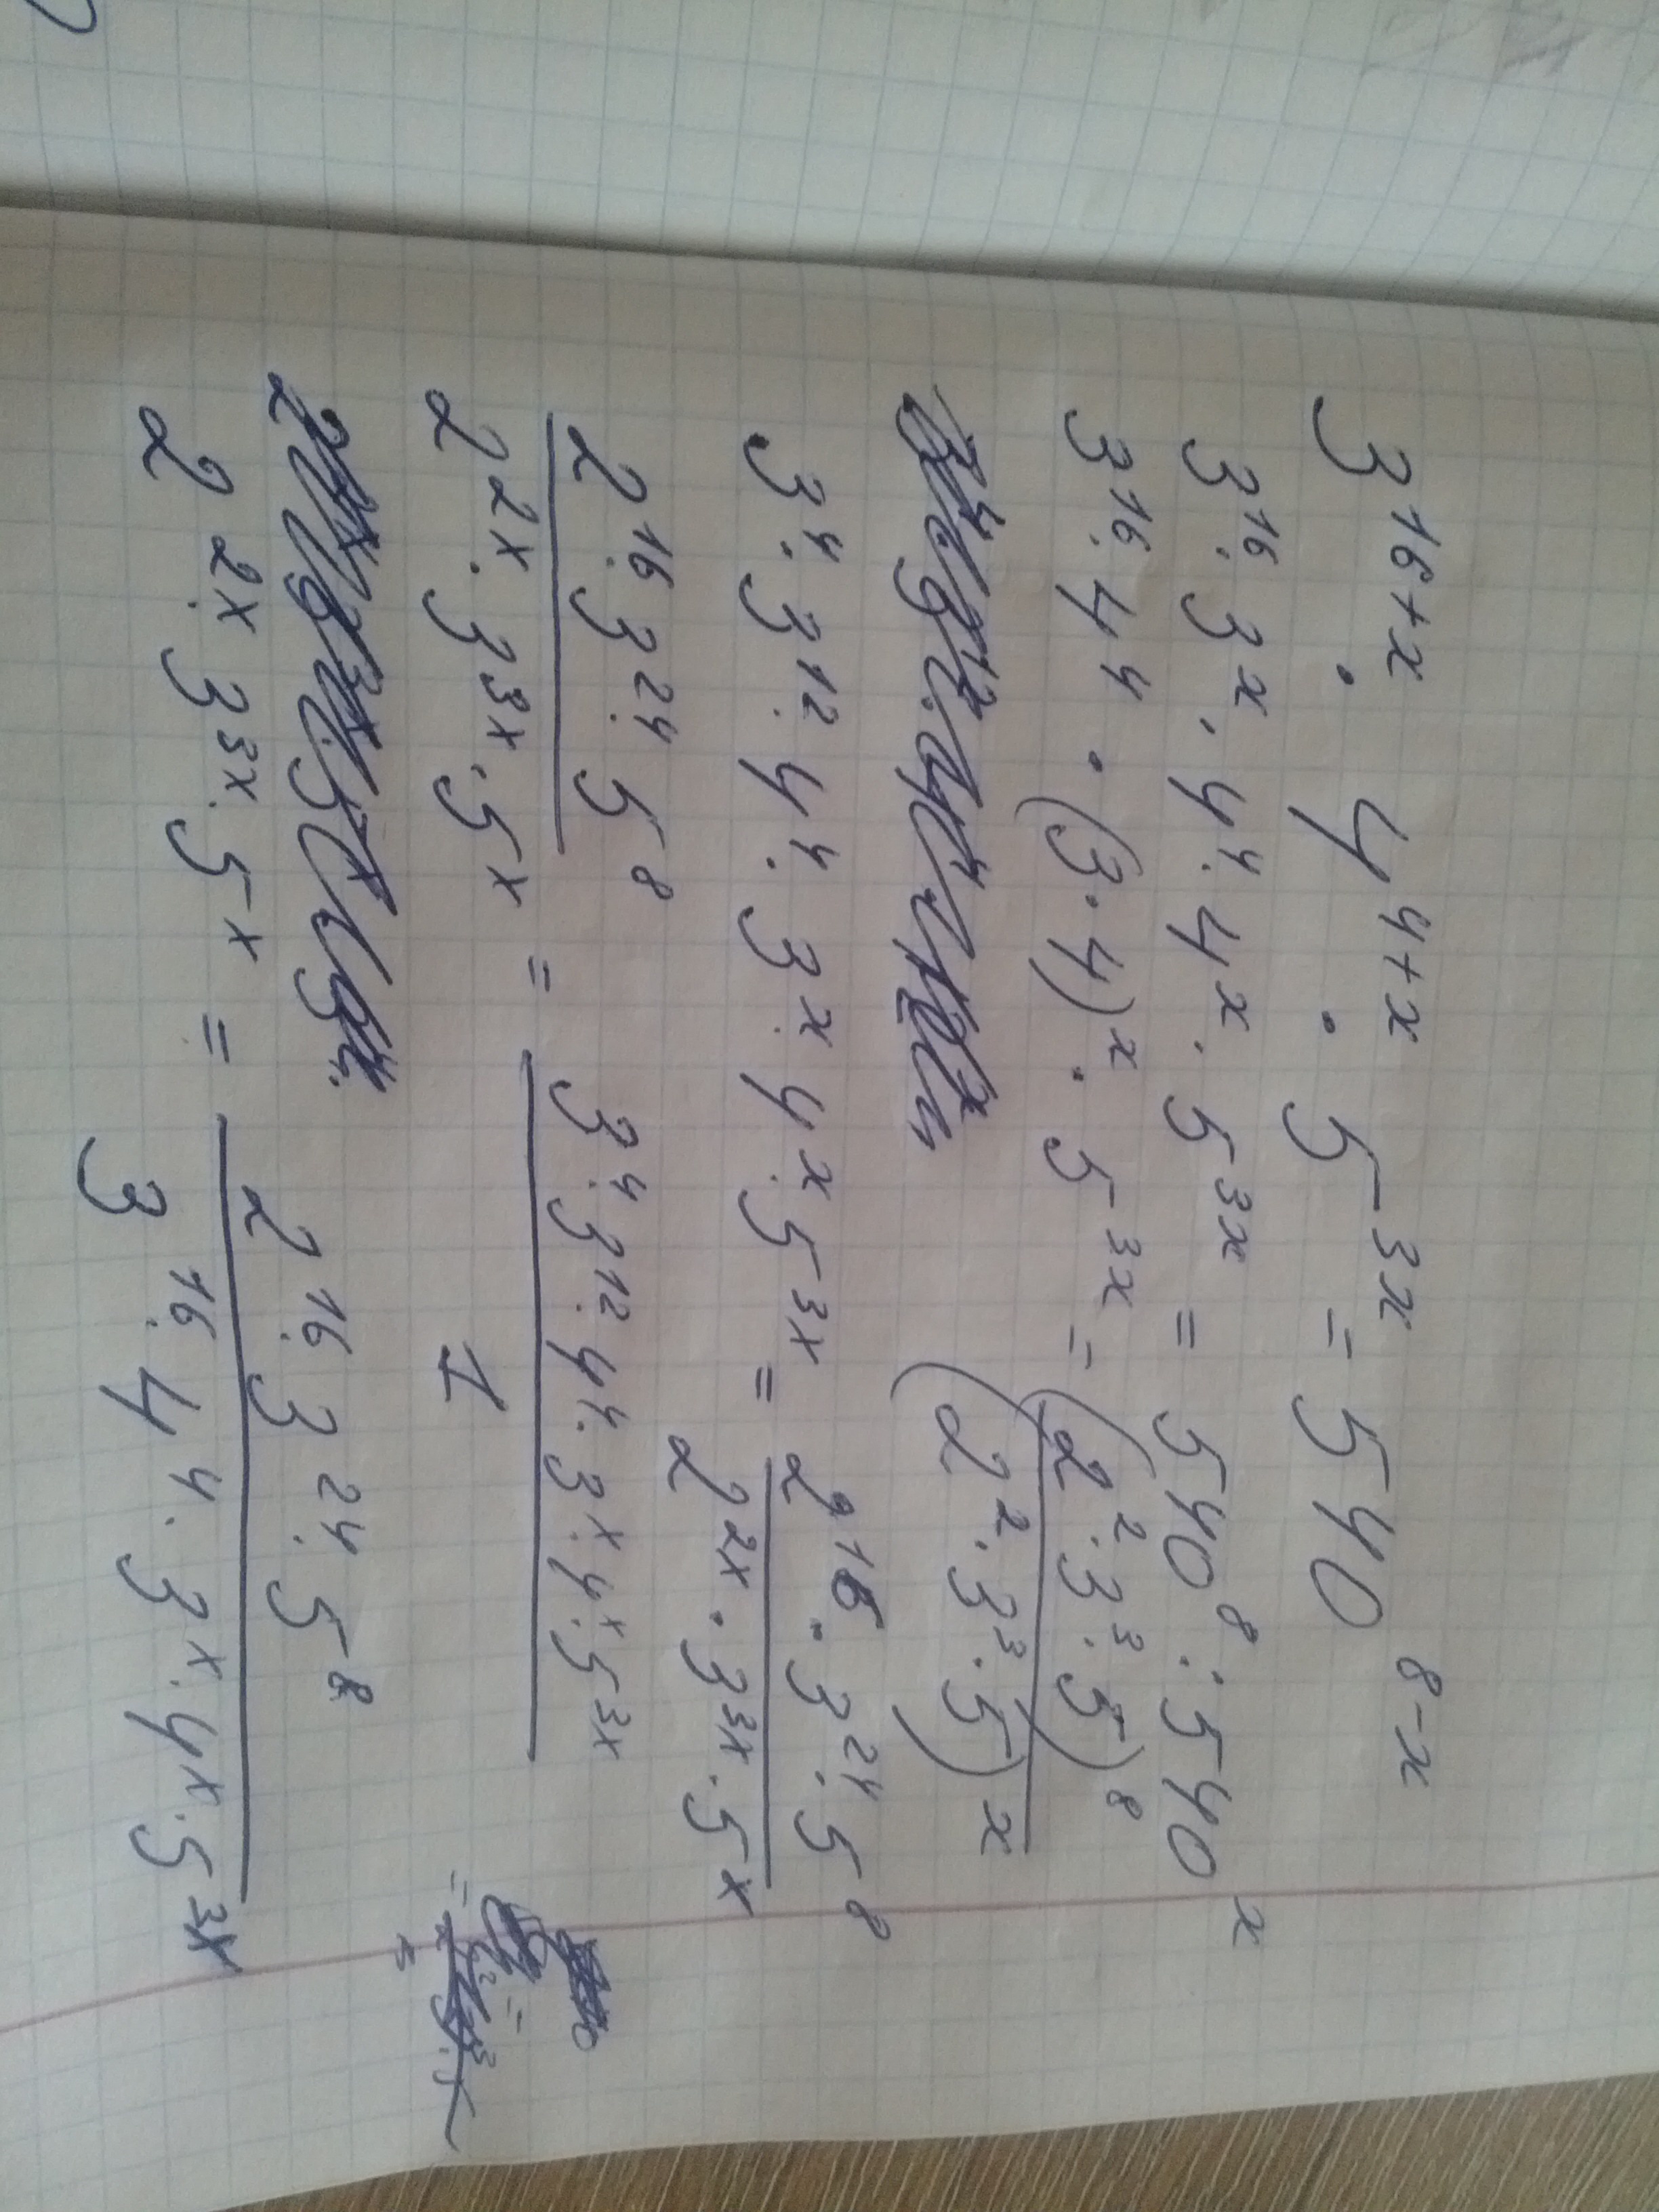 3^{16+x} · 4^{4+x} · 5^{3x} = 540^{8-x}
3^{16} · 3^x · 4^4 · 4^x · 5^{3x} = 540^8 : 540^x
3^{16} · 4^4 · (3·4)^x · 5^{3x} = (2^2 · 3^3 · 5)^8 / (2^2 · 3^3 · 5)^x
3^4 · 3^{12} · 4^4 · 3^x · 4^x · 5^{3x} = 2^{16} · 3^{24} · 5^8 / 2^{2x} · 3^{3x} · 5^x
2^{16} · 3^{24} · 5^8 / 2^{2x} · 3^{3x} · 5^x = 3^4 · 3^{12} · 4^4 · 3^x · 4^x · 5^{3x} / 1
2^{2x} · 3^{3x} · 5^x = 2^{16} · 3^{24} · 5^8 / 3^{16} · 4^4 · 3^x · 4^x · 5^{3x}